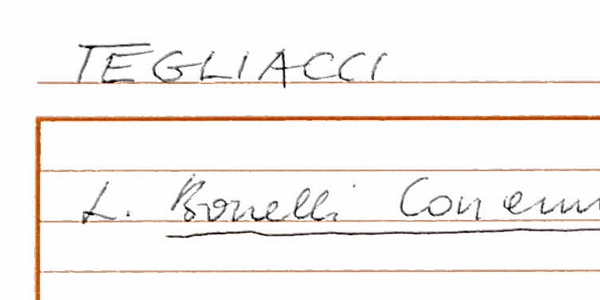 TEGLIACCI
L. Bonelli Conenn